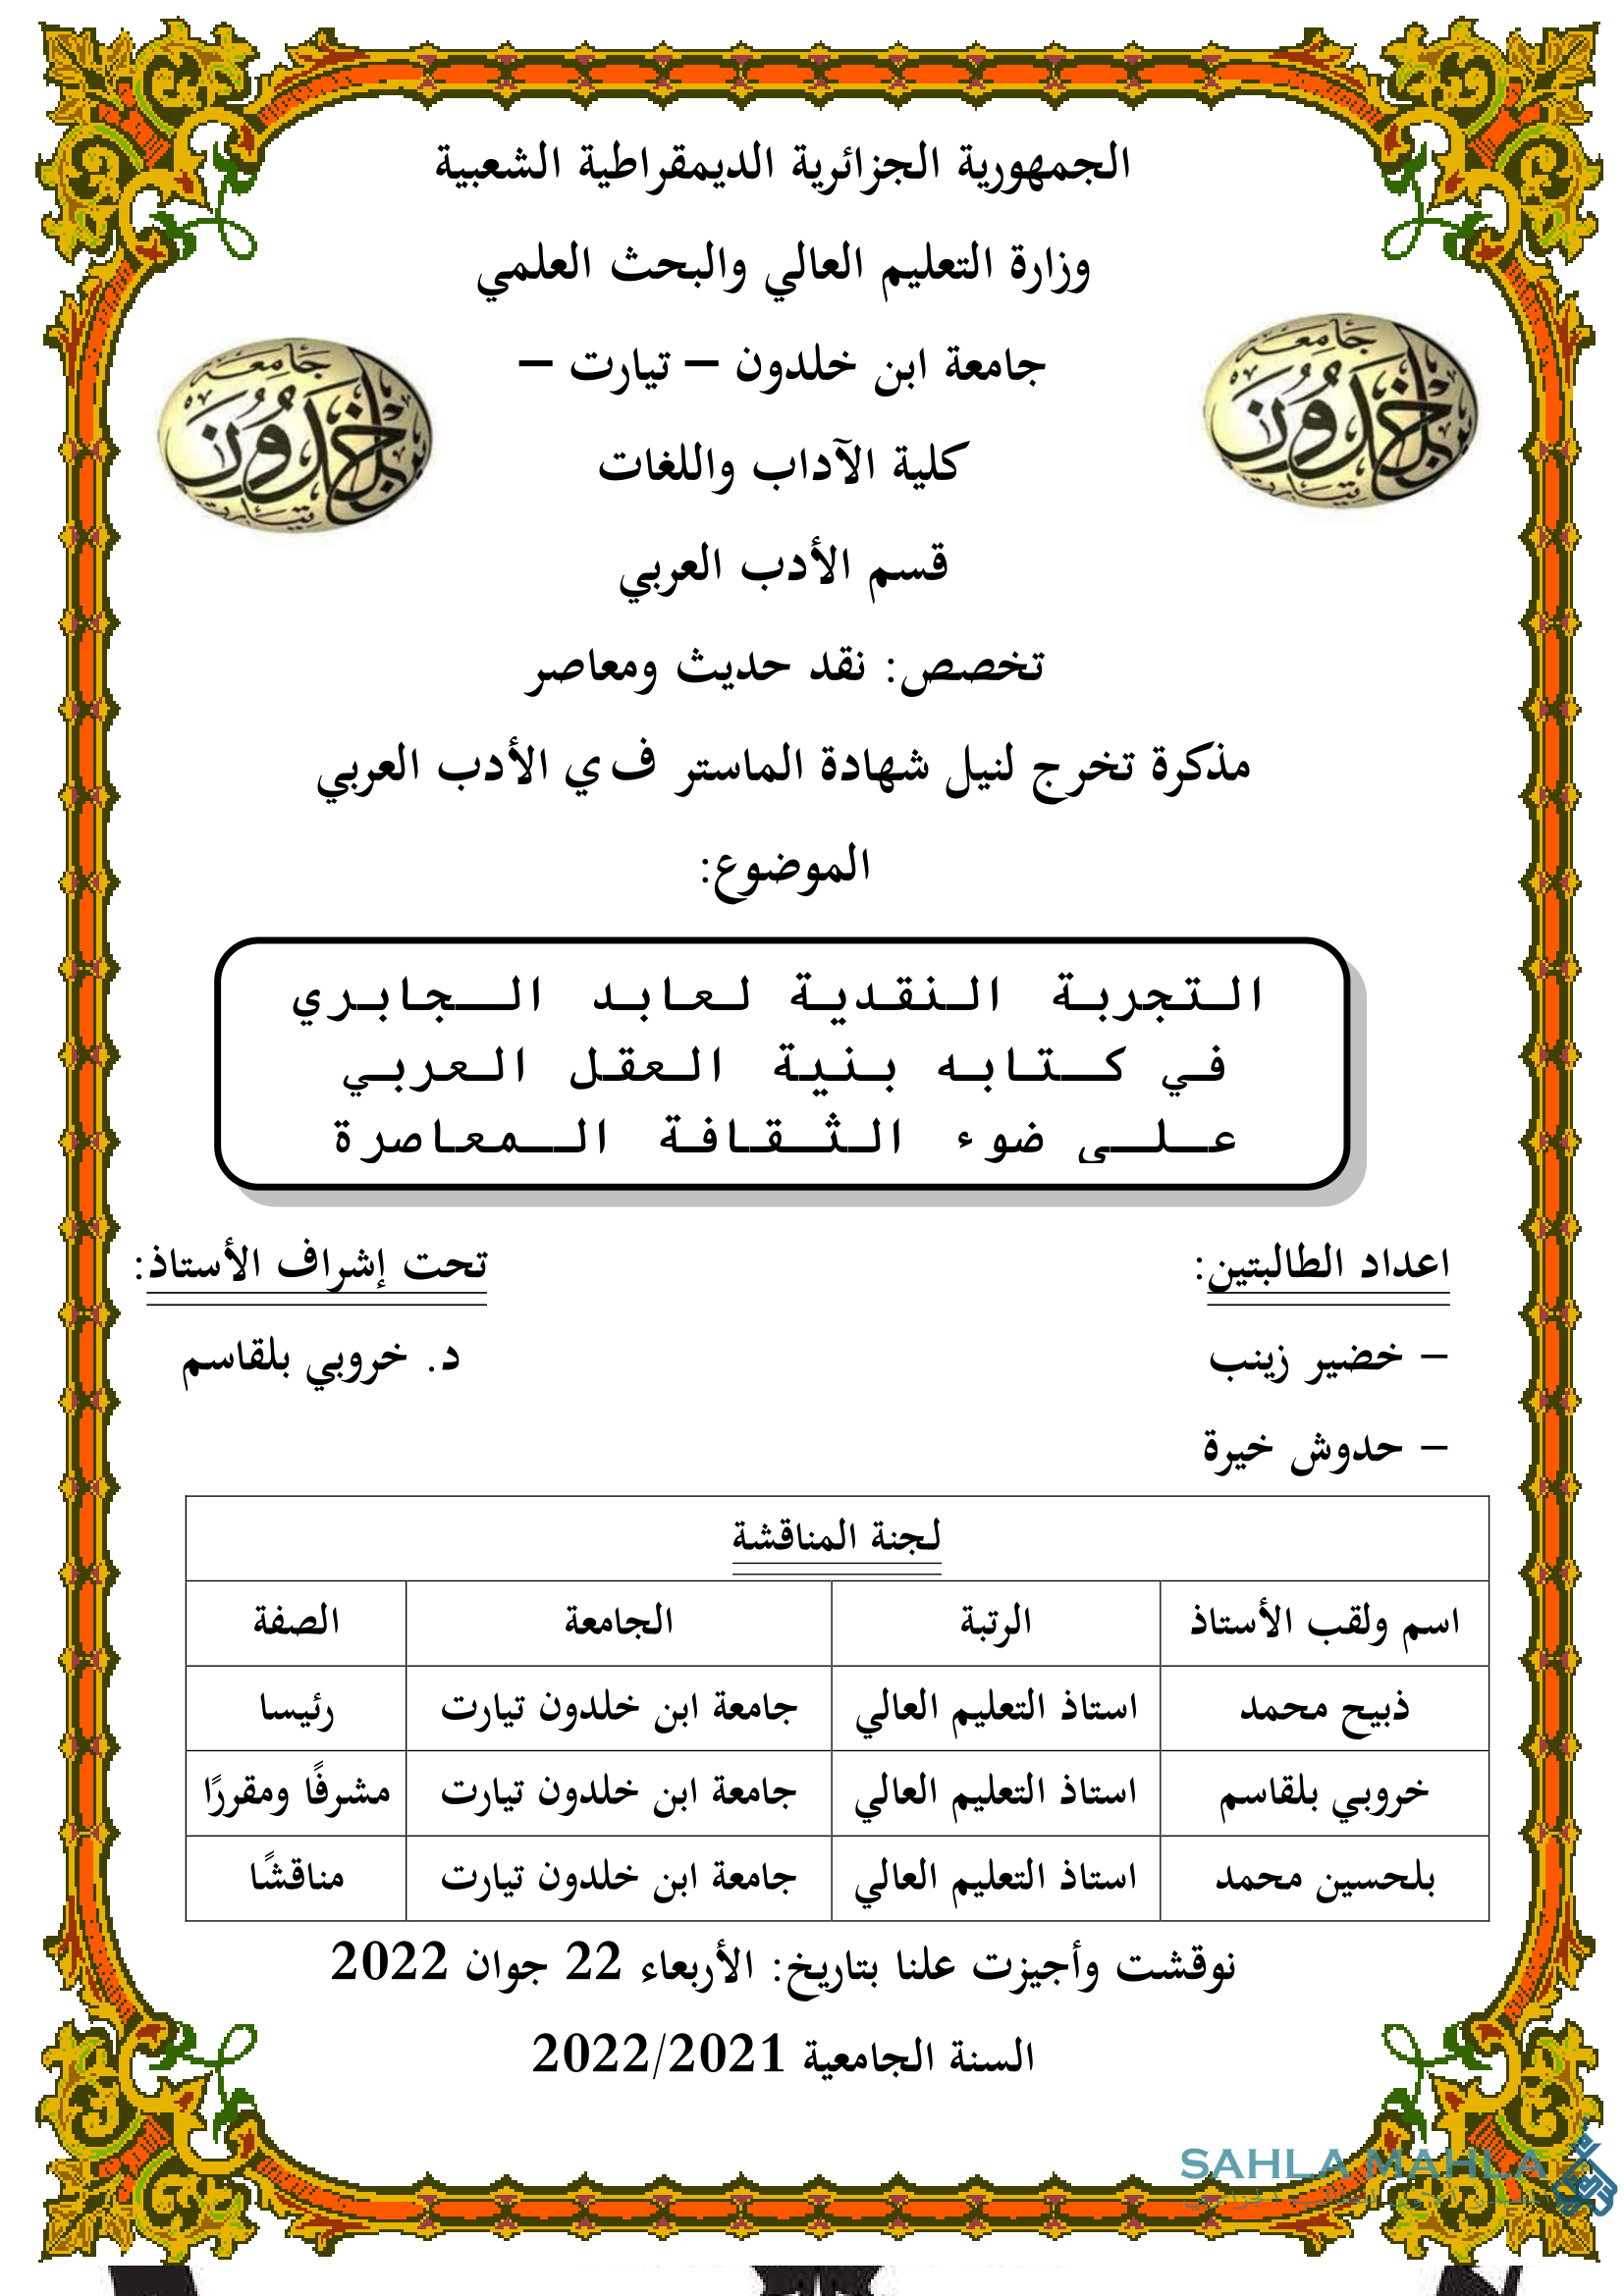 الجمهورية الجزائرية الديمقراطية الشعبية
وزارة التعليم العالي والبحث العلمي
جامعة ابن خلدون – تيارت –
كلية الآداب واللغات
قسم الأدب العربي
تخصص: نقد حديث ومعاصر
مذكرة تخرج لنيل شهادة الماستر ف ي الأدب العربي
الموضوع:
الـتجربـة الـنقديـة لـعابـد الــجابـري
فـي كــتابـه بـنيـة الـعقل الـعربـي
عــلــى ضوء الـثـقـافـة الــمعـاصرة
اعداد الطالبتين:
– خضير زينب
– حدوش خيرة
تحت إشراف الأستاذ:
د. خروبي بلقاسم
لجنة المناقشة
اسم ولقب الأستاذ الرتبة الجامعة الصفة
ذبيح محمد استاذ التعليم العالي جامعة ابن خلدون تيارت رئيسا
خروبي بلقاسم استاذ التعليم العالي جامعة ابن خلدون تيارت مشرفًا ومقررًا
بلحسين محمد استاذ التعليم العالي جامعة ابن خلدون تيارت مناقشًا
نوقشت وأجيزت علنا بتاريخ: الأربعاء 22 جوان 2022
السنة الجامعية 2022/2021
SAHLA MAHLA